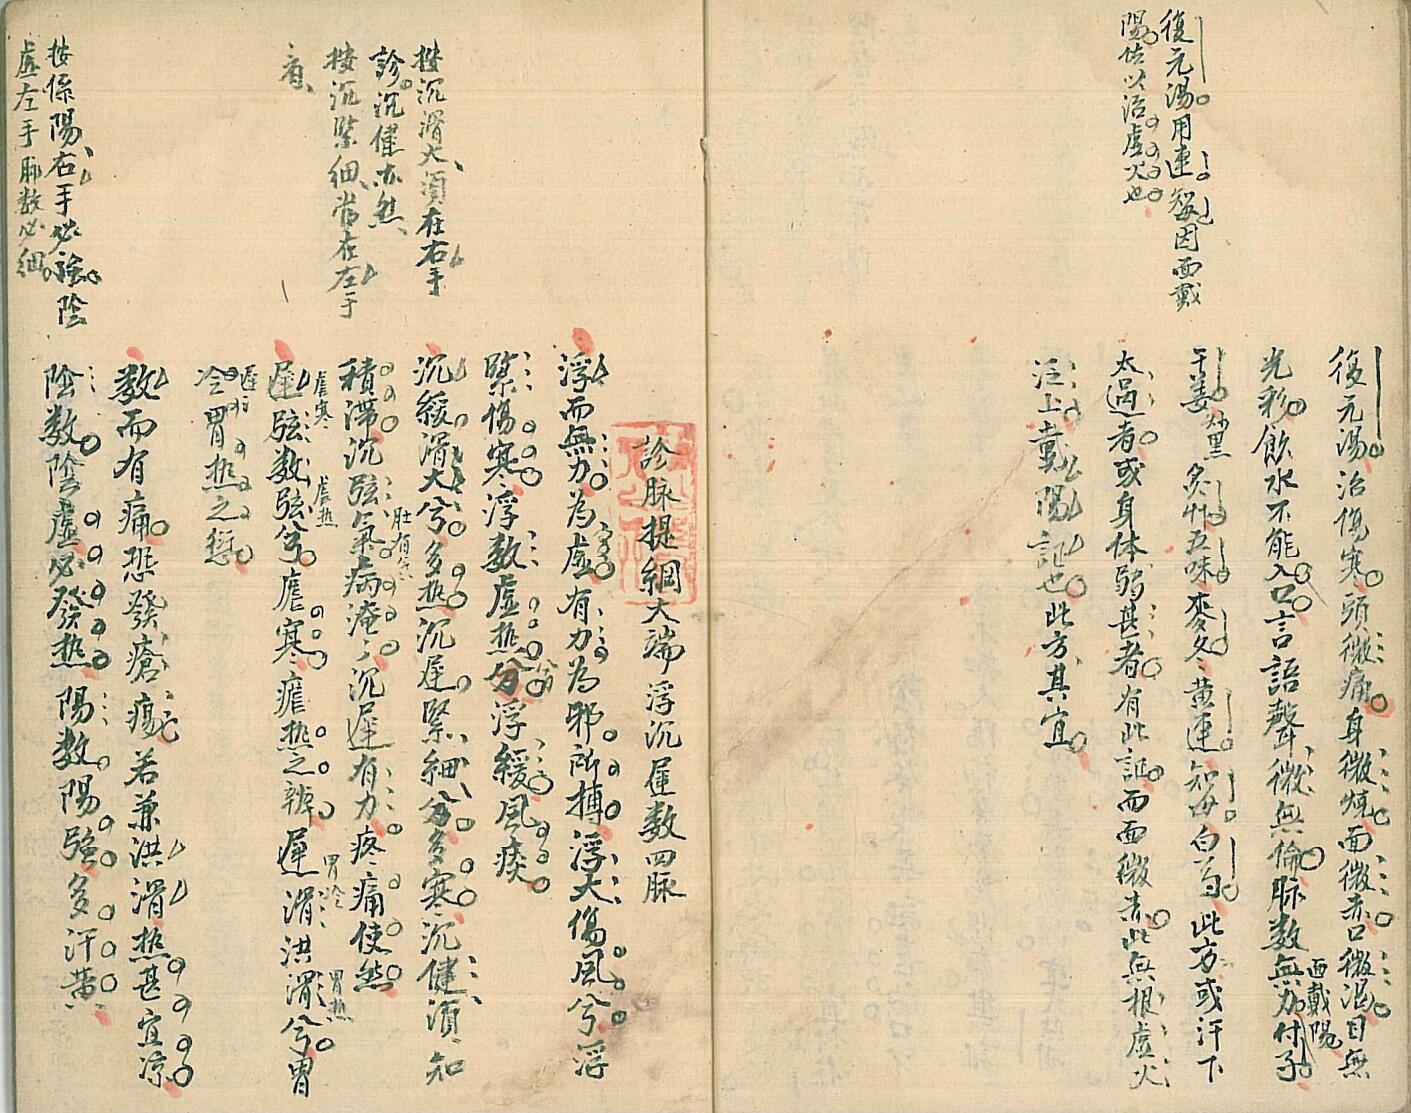 復元湯用連知母因面戴
陽佐以治虛火也
復元湯治傷寒頭微痛身微燒面微赤口微渴目無
光彩飲水不能入口言語聲微無倫脈数無力付子
面戴陽
干姜炒黑炙艸五味麥冬黃連知母白芍此方或汗下
太過者或身体弱甚者有此証而面微赤此無根虛火
泛上戴陽証也此方其宜
診脉提綱大端浮沉遅数四脉
按沉滑大須在右手
診沉健亦然
按沉緊細常在左手
看
按係陽右手必強陰
虛左手脉数必細
浮而無力為虛有力為邪所搏浮大傷風兮浮
緊傷寒浮数虛热兮浮緩風痰
沉緩滑大兮多热沉遅緊細兮多寒沉健須知
積滯沉弦氣病淹〻沉遅有力疼痛使然
肚有
遅弦数弦兮瘧寒瘧热之辨遅滑洪滑兮胃
瘧寒 瘧热 胃冷 胃热
冷胃热之愆
数而有痛恐發瘡瘍若兼洪滑热甚宜凉
陰数陰虛必發热陽数陽強多汗黃